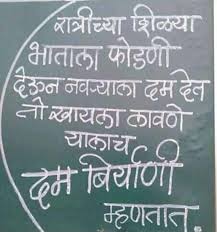 रात्रीच्या शिळ्या
भाताला फोडणी
देऊन नवऱ्याला दम देत
तो खायला लावणे
यालाच
दम बिर्याणी
म्हणतात.